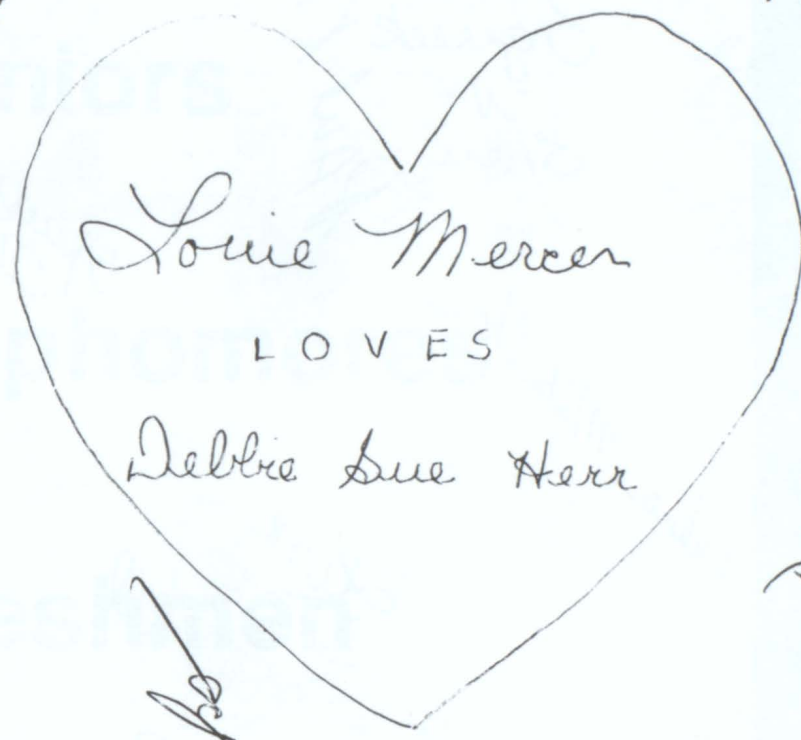 Louie Mercer
LOVES
Debbie Sue Herr